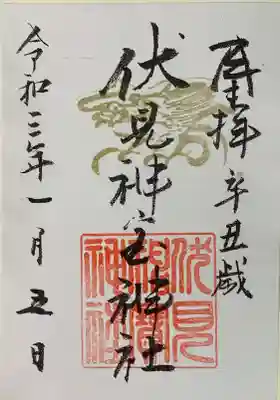 奉拝 辛丑歳
伏見神宝神社
令和三年一月五日
伏見
神寶
神社